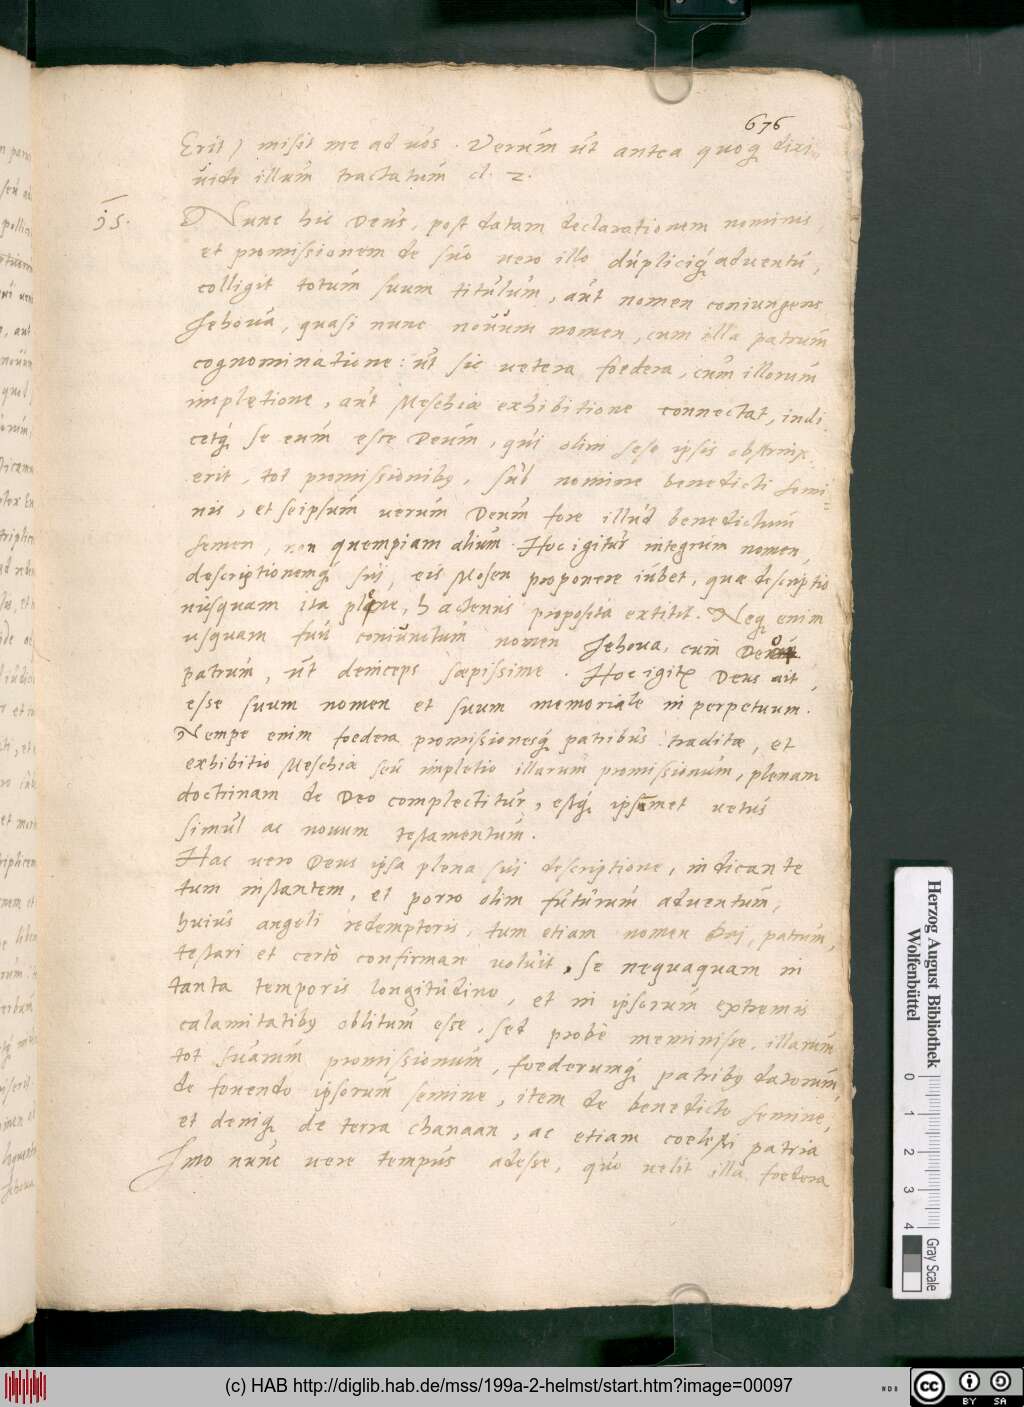 676
Erit) misit me ad uos. Verum ut antea quoq; dixi
uide illum tractatum cl. 2.
15.
Nunc hic Deus, post datam declarationem nominis,
et promissionem de suo uero illo dupliciq; aduentu,
colligit totum suum titulum, aut nomen coniungens
Jehoua, quasi nunc nouum nomen, cum illa patrum
cognominatione: ut sic uetera foedera, cum illorum
impletione, aut Meschiae exhibitione connectat, indi
cetq; se eum esse Deum, qui olim sese ipsis obstrinx
erit, tot promissionibꝫ, sub nomine benedicti semi=
nis, et seipsum uerum Deum fore illud benedictum
semen, non quempiam alium. Hoc igitur integrum nomen,
descriptionemq; sui, eis Mosen proponere iubet, quae descriptio
nusquam ita plene, hactenus proposita extitit. Neq; enim
usquam fuit coniunctum nomen Jehoua, cum Deo
patrum, ut deinceps saepissime. Hoc igitr Deus ait,
esse suum nomen et suum memoriale in perpetuum.
Nempe enim foedera promissionesq; patribus traditae, et
exhibitio Meschiae seu impletio illarum promissionum, plenam
doctrinam de Deo complectitur, estq; ipsummet uetus
simul ac nouum testamentum.
Hac uero Deus ipsa plena sui descriptione, indicante
tum instantem, et porro olim futurum aduentum,
huius angeli redemptoris, tum etiam nomen Dei, patrum,
testari et certo confirmari uoluit, se nequaquam in
tanta temporis longitudine, et in ipsorum extremis
calamitatibꝫ oblitum esse, sed probe meminisse, illarum
tot suarum promissionum, foederumq; patribꝫ datorum,
de fouendo ipsorum semine, item de benedicto semine,
et deniq; de terra chanaan, ac etiam coelesti patria
Imo nunc uere tempus adesse, quo uelit illa foedera
Herzog August Bibliothek
Wolfenbüttel
0 1 2 3 4
Gray Scale
(c) HAB http://diglib.hab.de/mss/199a-2-helmst/start.htm?image=00097
cc BY SA